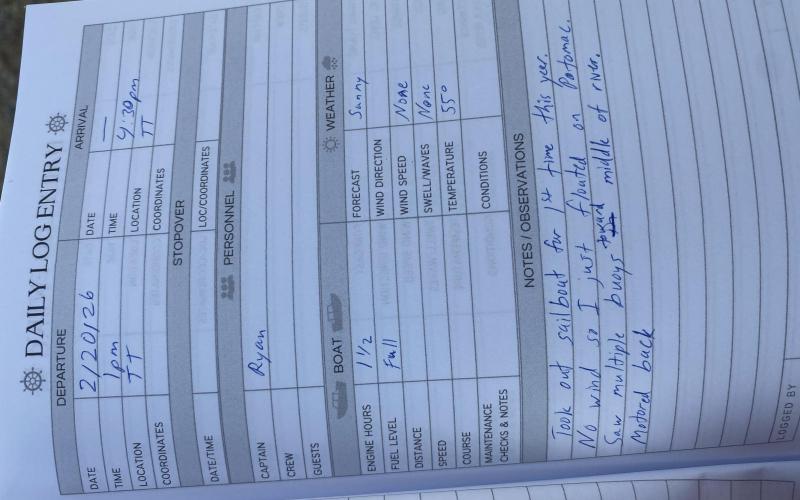 DAILY LOG ENTRY
DEPARTURE ARRIVAL
DATE 2/20/26 DATE —
TIME 1pm TIME 4:30pm
LOCATION TT LOCATION TT
COORDINATES COORDINATES
STOPOVER
DATE/TIME LOC/COORDINATES
PERSONNEL
CAPTAIN Ryan
CREW
GUESTS
BOAT WEATHER
ENGINE HOURS 1 1/2 FORECAST Sunny
FUEL LEVEL Full WIND DIRECTION
DISTANCE WIND SPEED None
SPEED SWELL/WAVES None
COURSE TEMPERATURE 55°
MAINTENANCE CHECKS & NOTES CONDITIONS
NOTES / OBSERVATIONS
Took out sailboat for 1st time this year.
No wind so I just floated on Potomac.
Saw multiple buoys toward middle of river.
Motored back
LOGGED BY